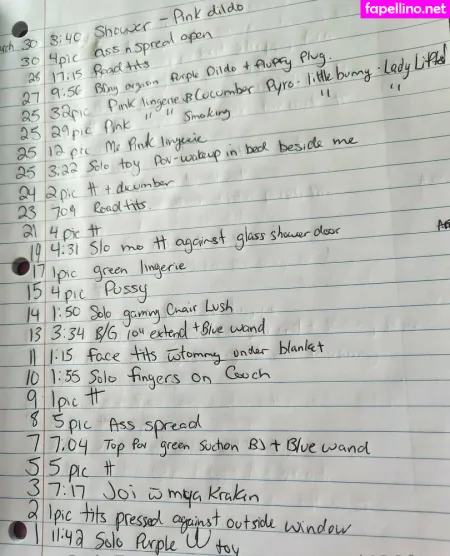 fapellino.net
March 30 3:40 Shower - Pink dildo
30 4pic ass n spread open
28 17:15 Road tits
27 9:56 orgasm Purple Dildo + Fluffy Plug
25 32pic Pink lingerie & Cucumber Pyro - little bunny - Lady Lifted
25 29pic Pink " " Smoking " "
25 12 pic Me Pink lingerie
25 3:22 Solo toy Pov-wakeup in bed beside me
24 2pic tt +
23 7:09 Road tits.
21 4pic tt
19 4:31 Slo mo tt against glass shower door
17 1pic green lingerie
15 4pic Pussy
14 1:50 Solo gaming Chair Lush
13 3:34 B/G extend + Blue wand
11 1:15 Face tits under blanket
10 1:55 Solo fingers on Couch
9 1pic tt
8 5pic Ass spread
7 7:04 Top Pov green suction BJ + Blue wand
5 5pic tt
3 7:17 Joi Krakin
2 1pic tits pressed against outside window
1 11:42 Solo Purple U toy